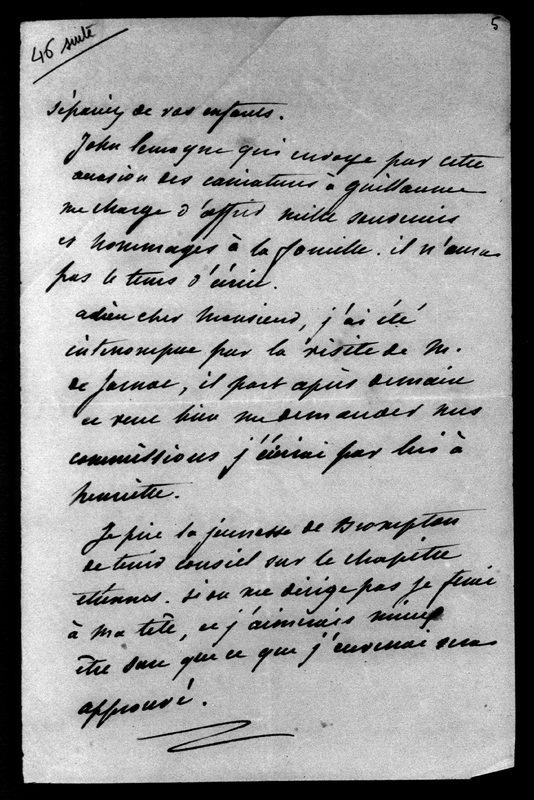 46 suite
5
sépariez de vos enfants.
John Lemoyne qui envoye par cette
occasion des caricatures à Guillaume
me charge d'offrir mille souvenirs
et hommages à la famille. il n'aura
pas le tems d'écrire.
adieu cher Monsieur, j'ai été
interrompue par la visite de M.
de Jarnac, il part après demain
et veut bien me demander mes
commissions j'écrirai par lui à
henriette.
Je prie la jeunesse de Brompton
de tenir conseil sur le chapitre
étrennes. si on me dirige pas je ferai
à ma tête, et j'aimerais mieux
être sure que ce que j'enverrai sera
approuvé.